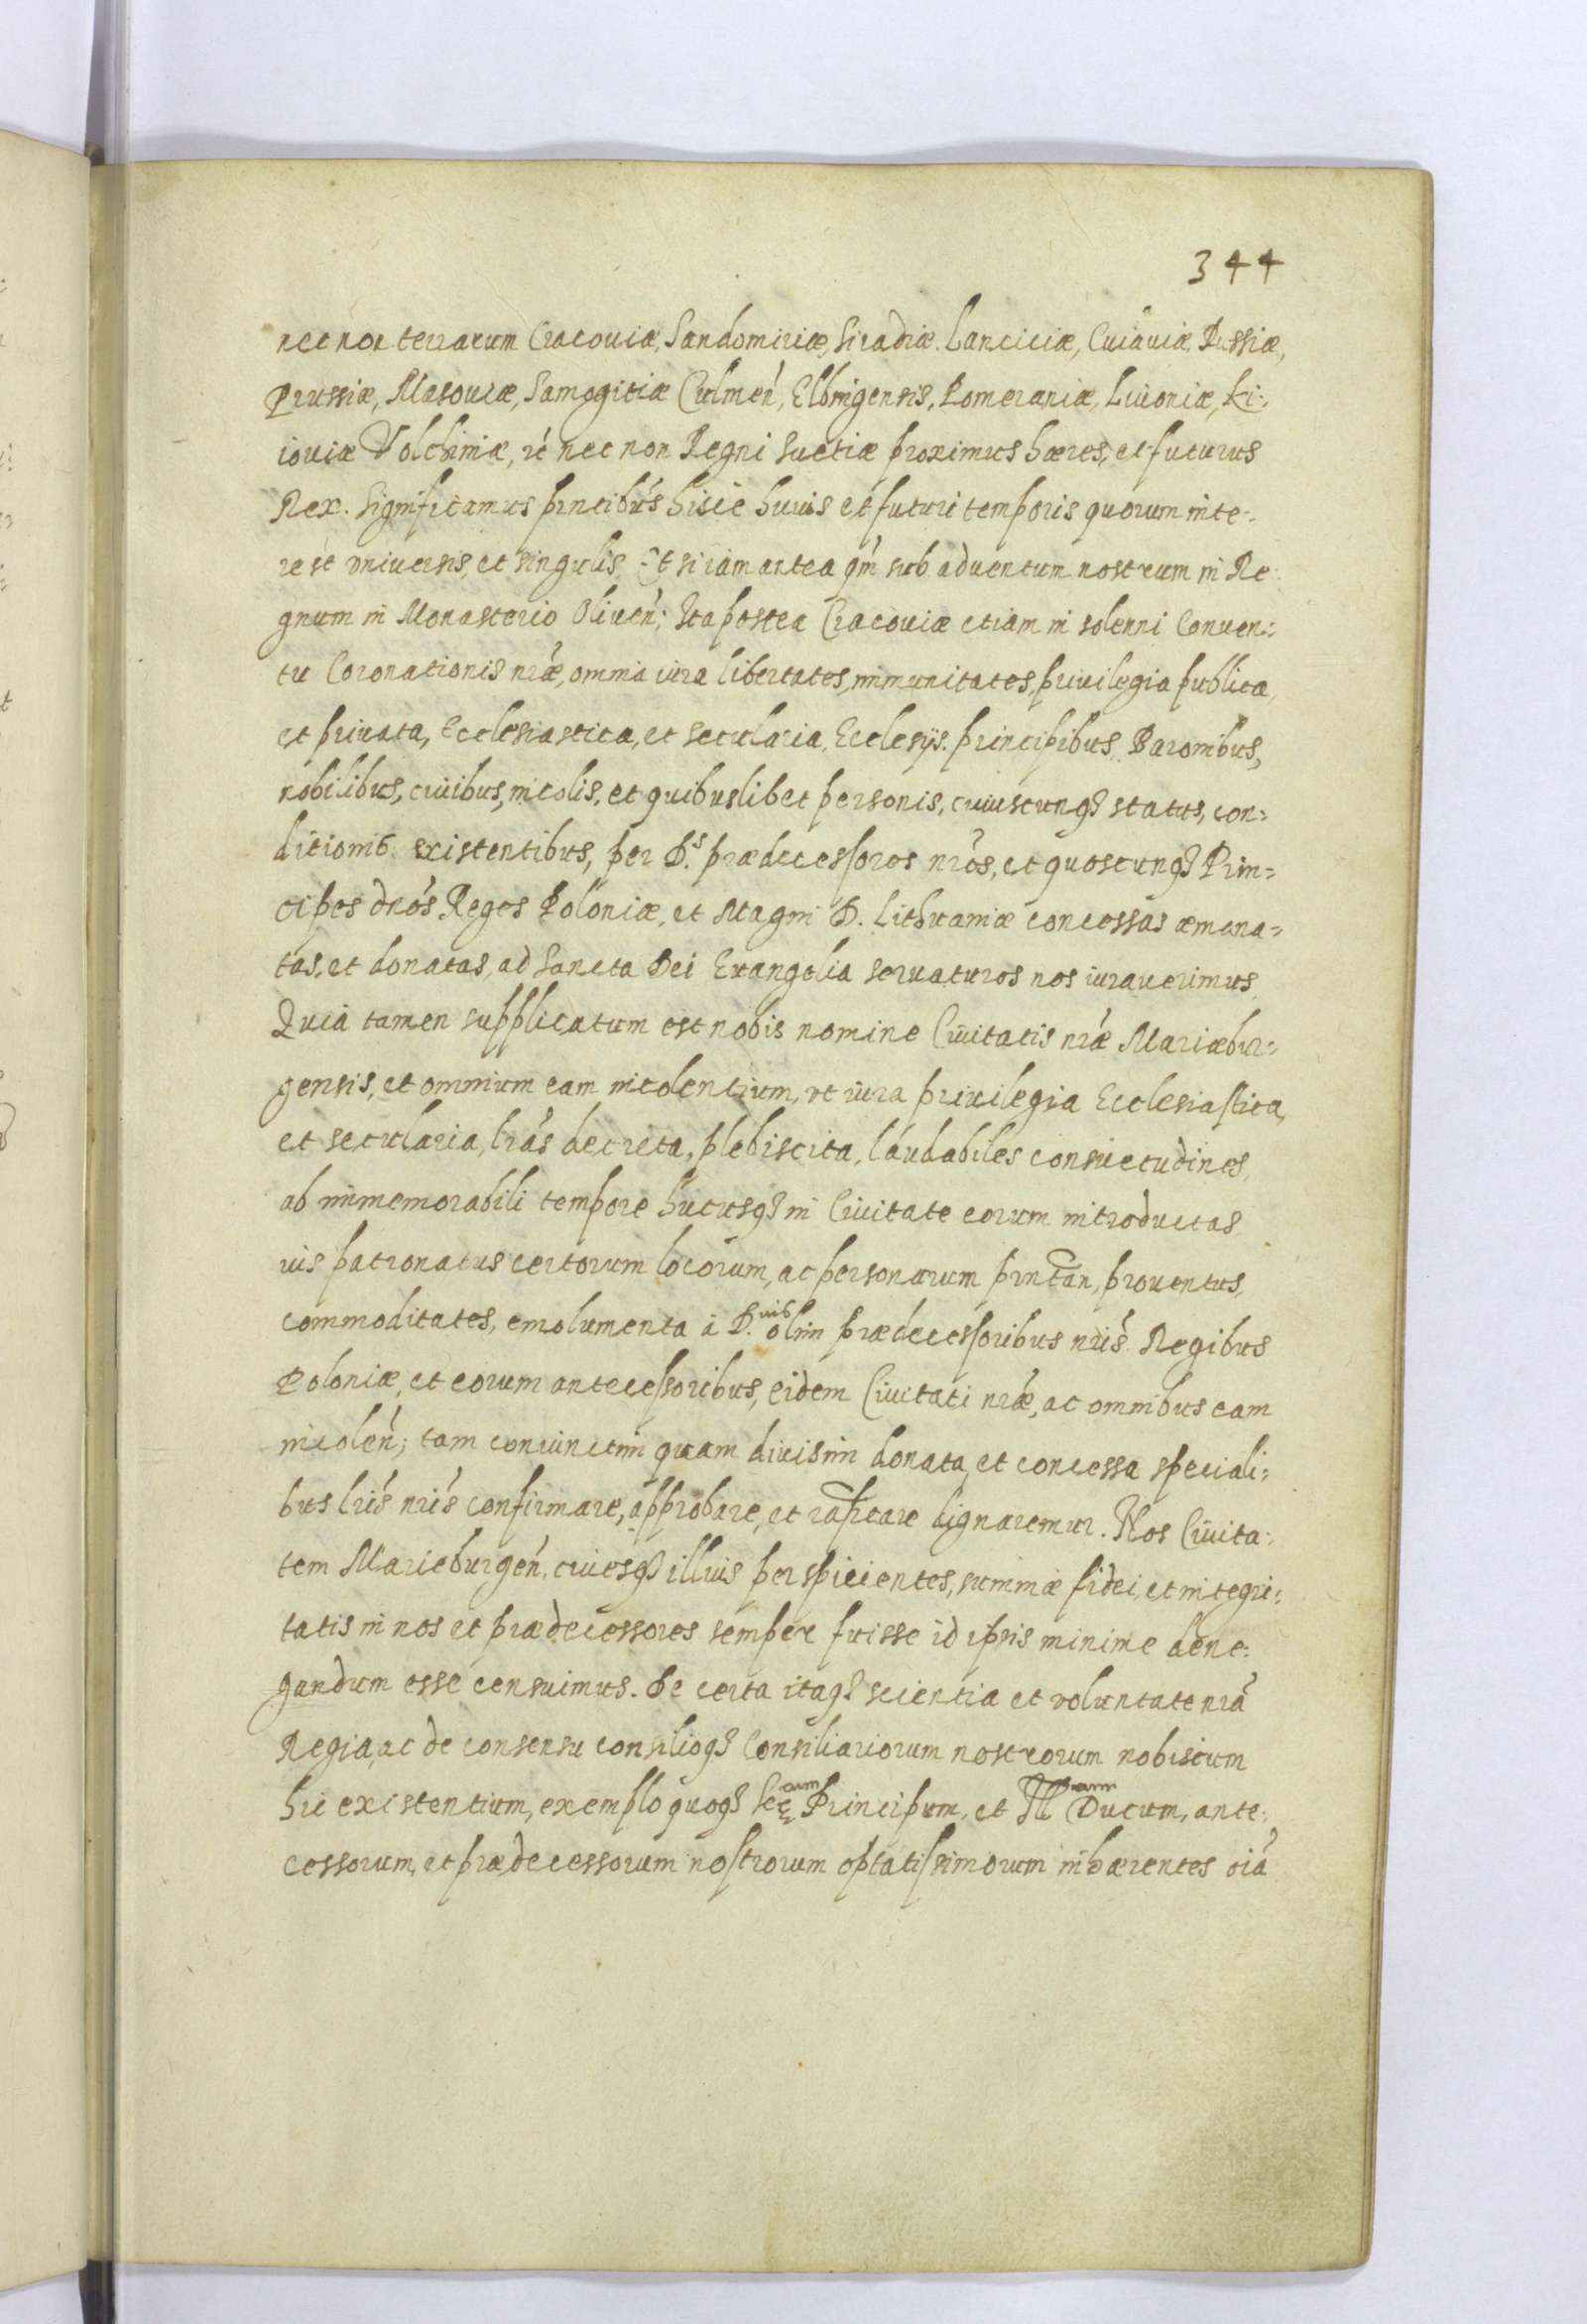 344
nec non terrarum Cracoviæ, Sandomiriæ, Siradiæ. Lanciciæ, Cuiaviæ, Russiæ,
Prussiæ, Masoviæ, Samogitiæ Culmen̕, Elbingensis, Pomeraniæ, Livoniæ, Ki:
ioviæ Volchiniæ, nec non Regni Suetiæ proximus hæres, et futurus
Rex. Significamus pntibus hisce huius et futuri temporis quorum inte:
rest vniversis, et singulis. Et si iam antea qm̕ sub adventum nostrum in Re:
gnum in Monasterio Oliven̕; Ita postea Cracoviæ etiam in solenni Conven:
tu Coronationis nr̕æ, omnia iura libertates, immunitates, privilegia publica,
et privata, Ecclesiastica, et secularia, Ecclesijs. principibus Baronibus,
nobilibus, civibus, incolis, et quibuslibet personis, cuiuscunq3 status, con:
ditionis existentibus, per D.s prædecessores nr̕os, et quoscunq3 Prin=
cipes dn̕os Reges Poloniæ, et Magni D. Lithuaniæ concessas æmana=
tas, et donatas, ad Sancta Dei Euangelia servaturos nos iuraverimus
Quia tamen supplicatum est nobis nomine Civitatis nr̕æ Mariæbur=
gensis, et omnium eam incolentium, vt iura privilegia Ecclesiastica,
et secularia, lr̕as decreta, plebiscita, laudabiles consuetudines,
ab immemorabili tempore hucusq3 in Civitate eorum introductas
ius patronatus certorum locorum, ac personarum prntan, proventus,
commoditates, emolumenta à D.uis olim prædecessoribus nr̕is Regibus
Poloniæ, et eorum antecessoribus, eidem Civitati nr̕æ, ac omnibus eam
incolen̕; tam coniunctim quam divisim donata, et concessa speciali=
bus lr̕is nr̕is confirmare, approbare, et raficare dignaremur. Nos Civita:
tem Marieburgen̕, civesq3 illius perspicientes, summæ fidei, et integri:
tatis in nos et prædecessores semper fuisse id ipsis minime dene:
gandum esse censuimus. De certa itaq3 scientia et voluntate nr̕a
Regia, ac de consensu consilioq3 Consiliariorum nostrorum nobiscum
hic existentium, exemplo quoq3 Principum, et Ill Ducum, ante:
cessorum, et prædecessorum nostrorum optatissimorum inhærentes oi̕a